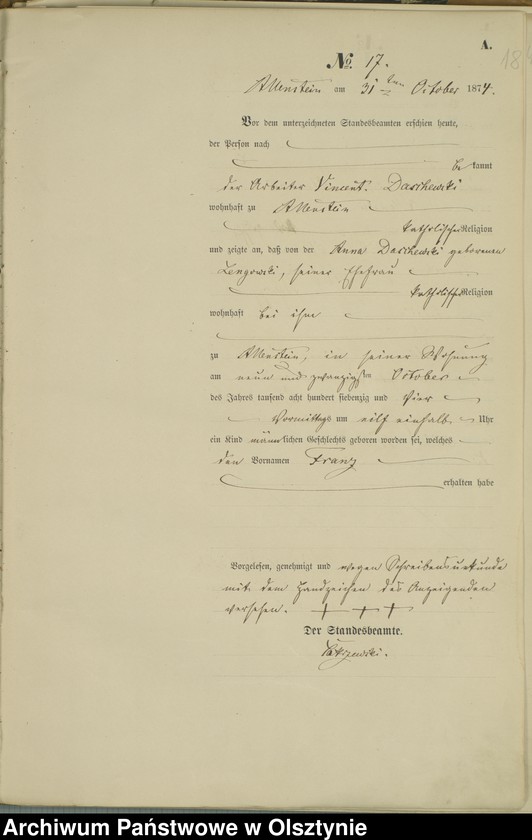 A.
No. 17.
Allenstein am 31ten October 1874.
Vor dem unterzeichneten Standesbeamten erschien heute,
der Person nach
bekannt
der Arbeiter Vincent Daschewski
wohnhaft zu Allenstein
katholischer Religion
und zeigte an, daß von der Anna Daschewski geborenen
Lengowski, seiner Ehefrau
katholischer Religion
wohnhaft bei ihm
zu Allenstein, in seiner Wohnung
am neun und zwanzigsten October
des Jahres tausend acht hundert siebenzig und vier
Vormittags um eilf einhalb Uhr
ein Kind männlichen Geschlechts geboren worden sei, welches
den Vornamen Franz
erhalten habe
Vorgelesen, genehmigt und wegen Schreibensunkunde
mit dem Handzeichen des Anzeigenden
versehen. + + +
Der Standesbeamte.
Archiwum Państwowe w Olsztynie